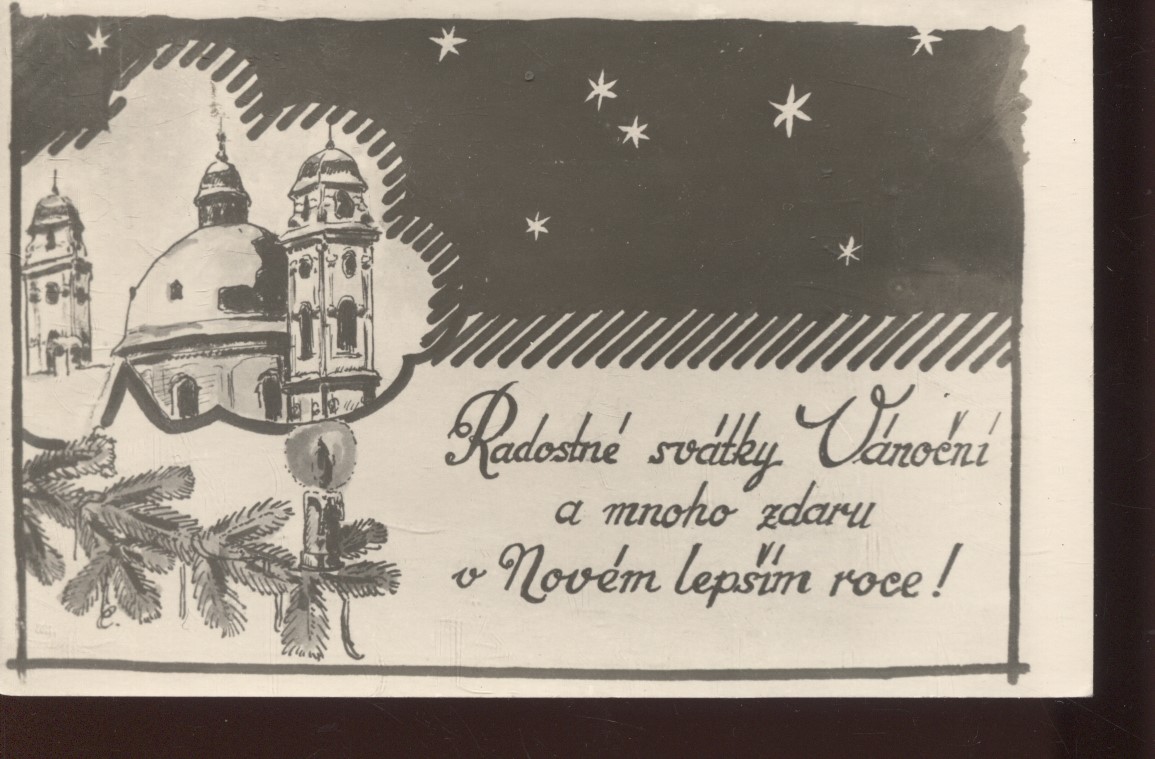 Radostné svátky Vánoční
a mnoho zdaru
v Novém lepším roce!